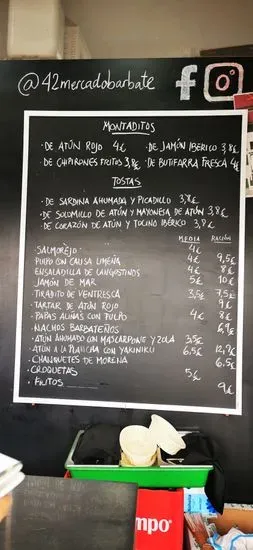 @42mercadobarbate f
MONTADITOS
· DE ATÚN ROJO 4€ · DE JAMÓN IBERICO 3,8€
· DE CHIPIRONES FRITOS 3,8€ · DE BUTIFARRA FRESCA 4€
TOSTAS
· DE SARDINA AHUMADA Y PICADILLO 3,8€
· DE SOLOMILLO DE ATÚN Y MAYONESA DE ATÚN 3,8€
· DE CORAZÓN DE ATÚN Y TOCINO IBÉRICO 3,8€
MEDIA RACIÓN
SALMOREJO 4€
PULPO CON CAUSA LIMEÑA 4€ 9,5€
ENSALADILLA DE LANGOSTINOS 4€ 8€
JAMÓN DE MAR 5€ 10€
TIRADITO DE VENTRESCA 3,5€ 7,5€
· TARTAR DE ATÚN ROJO 9€
· PAPAS ALIÑÁS CON PULPO 4€ 8€
· NACHOS BARBATEÑOS 6,9€
· ATÚN AHUMADO CON MASCARPONE Y ZOLA 3,5€
· ATÚN A LA PLANCHA CON YAKINIKU 6,5€ 12,9€
· CHANQUETES DE MORENA 6,5€
· CROQUETAS 5€
· FRITOS 9€
mpo®